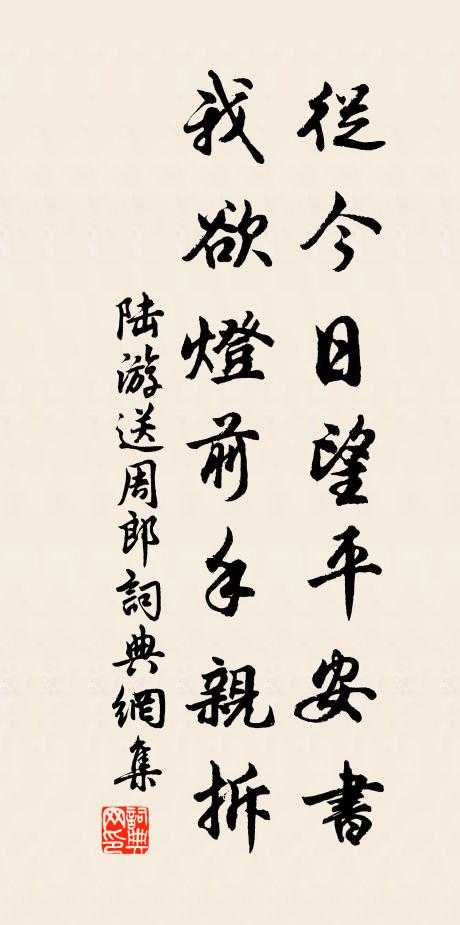 從今日望平安書
我欲燈前手親拆
陸游送周郎詞典網集
詞典網印